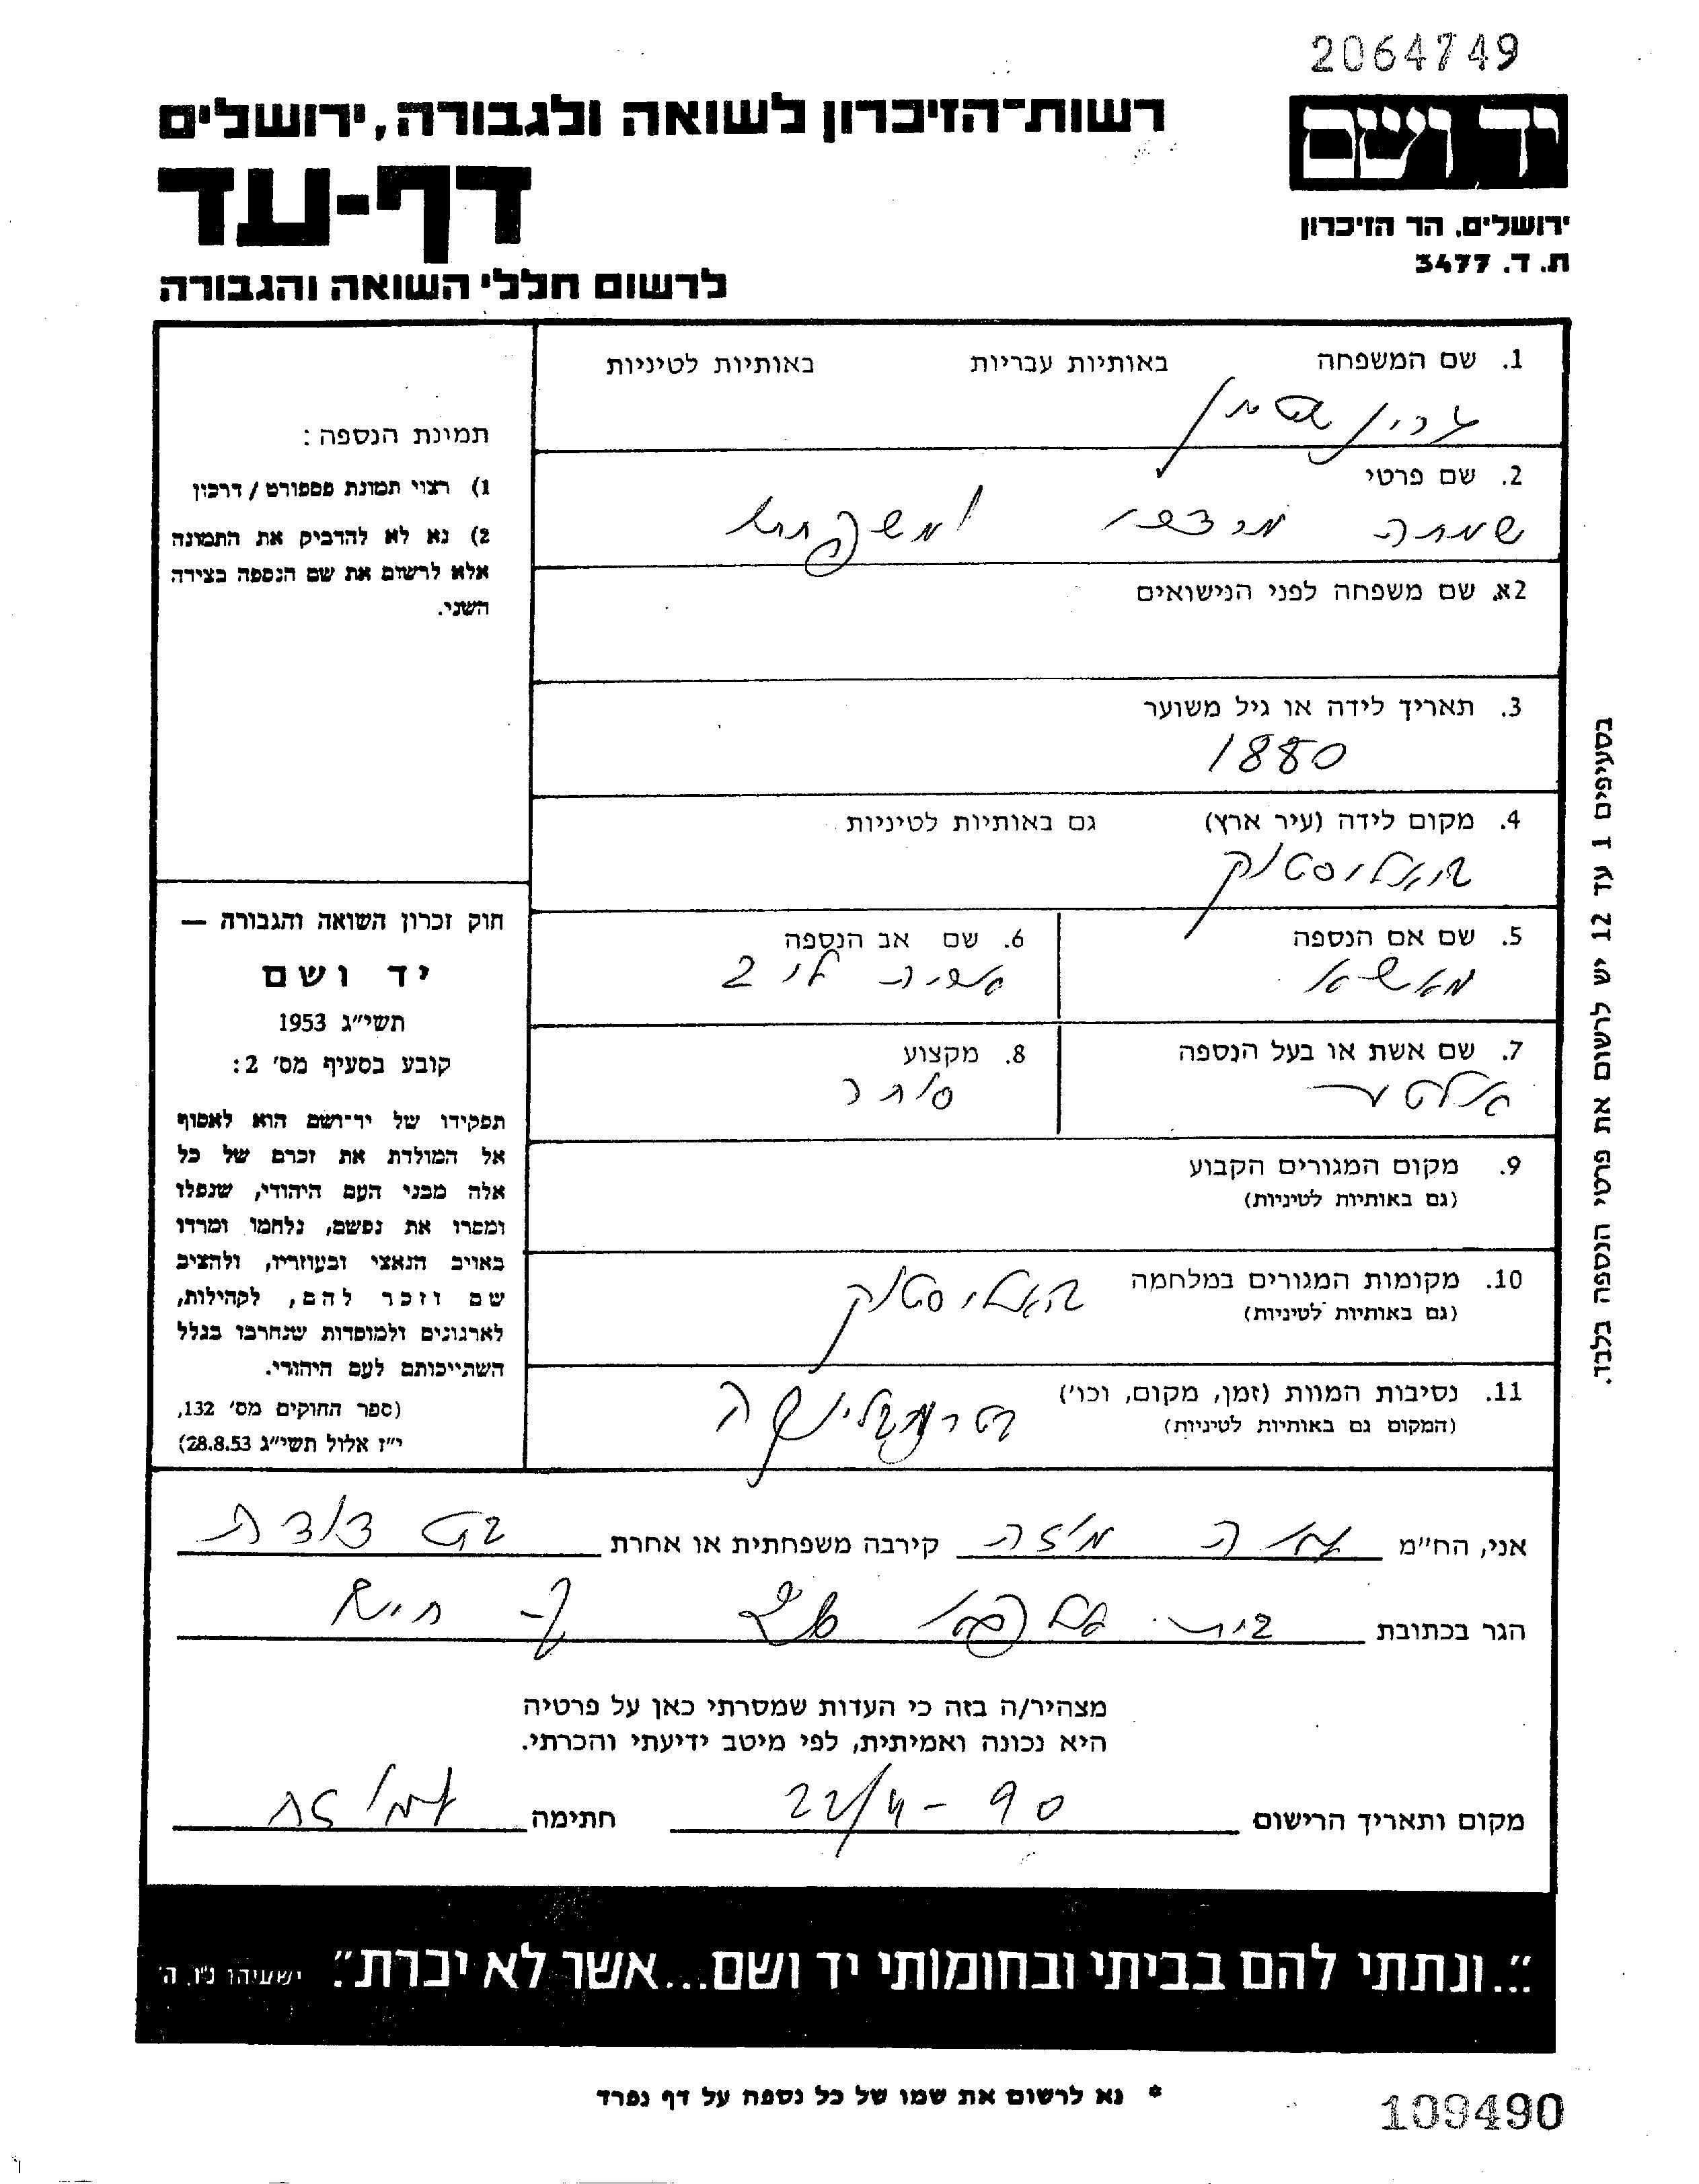 2064749
רשות-הזיכרון לשואה ולגבורה, ירושלים
דף-עד
לרשום חללי השואה והגבורה
יד ושם
ירושלים, הר הזיכרון
ת. ד. 3477
1. שם המשפחה באותיות עבריות באותיות לטיניות
גרינשטיין
2. שם פרטי
שמחה מרדכי ומשפחתו
2א. שם משפחה לפני הנישואים
3. תאריך לידה או גיל משוער
1880
4. מקום לידה (עיר ארץ) גם באותיות לטיניות
ביאליסטוק
5. שם אם הנספה
מאשא
6. שם אב הנספה
אריה לייב
7. שם אשת או בעל הנספה
אלטע
8. מקצוע
סוחר
9. מקום המגורים הקבוע
(גם באותיות לטיניות)
10. מקומות המגורים במלחמה
(גם באותיות לטיניות)
ביאליסטוק
11. נסיבות המוות (זמן, מקום, וכו')
(המקום גם באותיות לטיניות)
טרמבלינקה
תמונת הנספה:
1) רצוי תמונת פספורט / דרכון
2) נא לא להדביק את התמונה
אלא לרשום את שם הנספה בצידה
השני.
חוק זכרון השואה והגבורה —
יד ושם
תשי"ג 1953
קובע בסעיף מס' 2:
תפקידו של יד-ושם הוא לאסוף
אל המולדת את זכרם של כל
אלה מבני העם היהודי, שנפלו
ומסרו את נפשם, נלחמו ומרדו
באויב הנאצי ובעוזריו, ולהציב
שם וזכר להם, לקהילות,
לארגונים ולמוסדות שנחרבו בגלל
השתייכותם לעם היהודי.
(ספר החוקים מס' 132,
י"ז אלול תשי"ג 28.8.53)
בסעיפים 1 עד 12 יש לרשום את פרטי הנספה בלבד.
אני, הח"מ קירבה משפחתית או אחרת בת דודה
הגר בכתובת
מצהיר/ה בזה כי העדות שמסרתי כאן על פרטיה
היא נכונה ואמיתית, לפי מיטב ידיעתי והכרתי.
מקום ותאריך הרישום 22/4-90 חתימה
"...ונתתי להם בביתי ובחומותי יד ושם...אשר לא יכרת". ישעיהו נ"ו, ה'
* נא לרשום את שמו של כל נספה על דף נפרד
109490